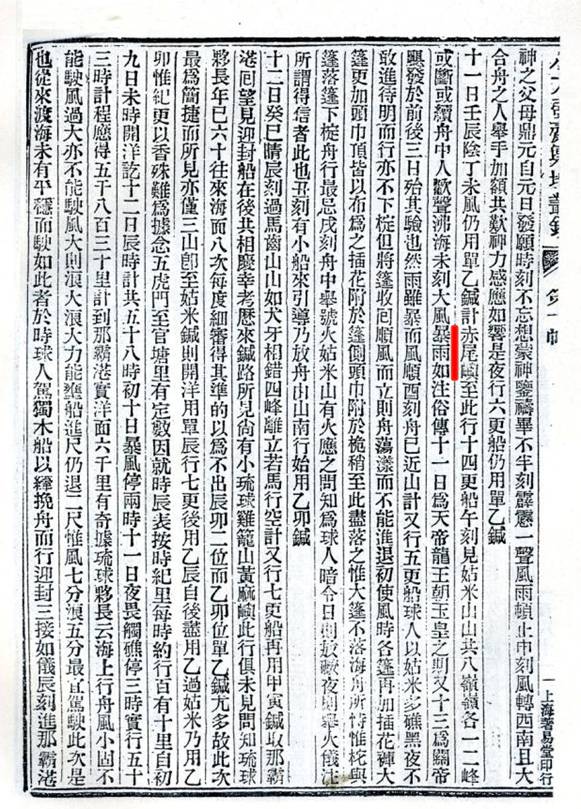 小方壺齋輿地叢鈔 第十帙
神之父母鼎元自元日發願時刻不忘想蒙神鑒禱畢不半刻霹靂一聲風雨頓止申刻風轉西南且大
合舟之人舉手加額共歎神力感應如響是夜行六更船仍用單乙鍼
十一日壬辰陰丁未風仍用單乙鍼計赤尾嶼至此行十四更船午刻見姑米山山共八嶺嶺各一二峰
或斷或續舟中人歡聲沸海未刻大風暴雨如注俗傳十一日爲天帝龍王朝玉皇之期又十三爲關帝
颶發於前後三日殆其驗也然雨雖暴而風順酉刻舟已近山計又行五更船球人以姑米多礁黑夜不
敢進待明而行亦不下椗但將篷收回順風而立則舟蕩漾而不能進退初使風時各篷再加插花褲大
篷更加頭巾頂皆以布爲之插花附於篷側頭巾附於桅稍至此盡落之惟大篷不落海舟所恃惟柁與
篷落篷下椗舟行最忌戌刻舟中舉號火姑米山有火應之問知爲球人暗令日則放礮夜則舉火儀注
所謂得信者此也丑刻有小船來引導乃放舟由山南行始用乙卯鍼
十二日癸巳晴辰刻過馬齒山山如犬牙相錯四峰離立若馬行空計又行七更船再用甲寅鍼取那霸
港囘望見迎封船在後共相慶幸考歷來鍼路所見尚有小琉球雞籠山黃麻嶼此行俱未見問知琉球
夥長年已六十往來海面八次每度細審得其準的以爲不出辰卯二位而乙卯位單乙鍼尤多故此次
最爲簡捷而所見亦僅三山卽至姑米鍼則開洋用單辰行七更後用乙辰自後盡用乙過姑米乃用乙
卯惟紀更以香殊難爲據念五虎門至官塘里有定數因就時辰表按時紀里每時約行百有十里自初
九日未時開洋訖十二日辰時計共五十八時初十日暴風停兩時十一日夜畏觸礁停三時實行五十
三時計程應得五千八百三十里計到那霸港實洋面六千里有奇據琉球夥長云海上行舟風小固不
能駛風過大亦不能駛風大則浪大浪大力能壅船進尺仍退二尺惟風七分浪五分最宜駕駛此次是
也從來渡海未有平穩而駛如此者於時球人駕獨木船以纖挽舟而行迎封三接如儀辰刻進那霸港
上海著易堂印行